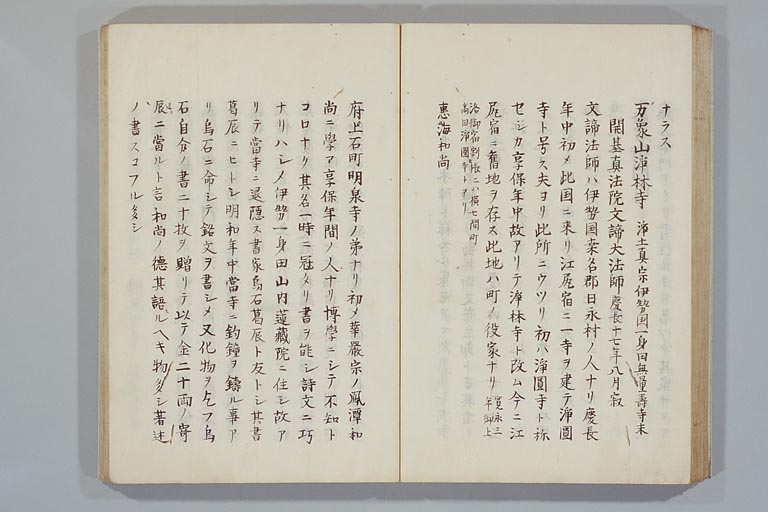 ナラス
万象山淨林寺 浄土真宗伊勢国一身田無量壽寺末
開基真法院文諦大法師慶長十七年八月寂
文諦法師ハ伊勢国桒名郡日永村ノ人ナリ慶長
年中初メ此国ニ来リ江尻宿ニ一寺ヲ建テ淨圓
寺ト号ス夫ヨリ此所ニウツリ初ハ淨圓寺ト称
セシカ享保年中故アリテ淨林寺ト改ム今ニ江
尻宿ニ舊地ヲ存ス此地ハ町ノ役家ナリ 寛永三年御上
洛御宿割帳ニハ横七間町
高田淨圓寺トアリ
恵海和尚
府上石町明泉寺ノ弟ナリ初メ華嚴宗ノ鳳潭和
尚ニ學フ享保年間ノ人ナリ博學ニシテ不知ト
コロナク其名一時ニ冠タリ書ヲ能シ詩文ニ巧
ナリハシメ伊勢一身田山内蓮藏院ニ住シ故ア
リテ當寺ニ退隠ス書家烏石葛辰ト友トシ其書
葛辰ニヒトシ明和年中當寺ニ釣鐘ヲ鑄ル事ア
リ烏石ニ命シテ銘文ヲ書シメ又化物ヲ乞フ烏
石自余ノ書二十枚ヲ贈リテ以テ金二十両ノ寄
辰ニ當ルト言和尚ノ德其語ルヘキ物多シ著述
ノ書スコフル多シ